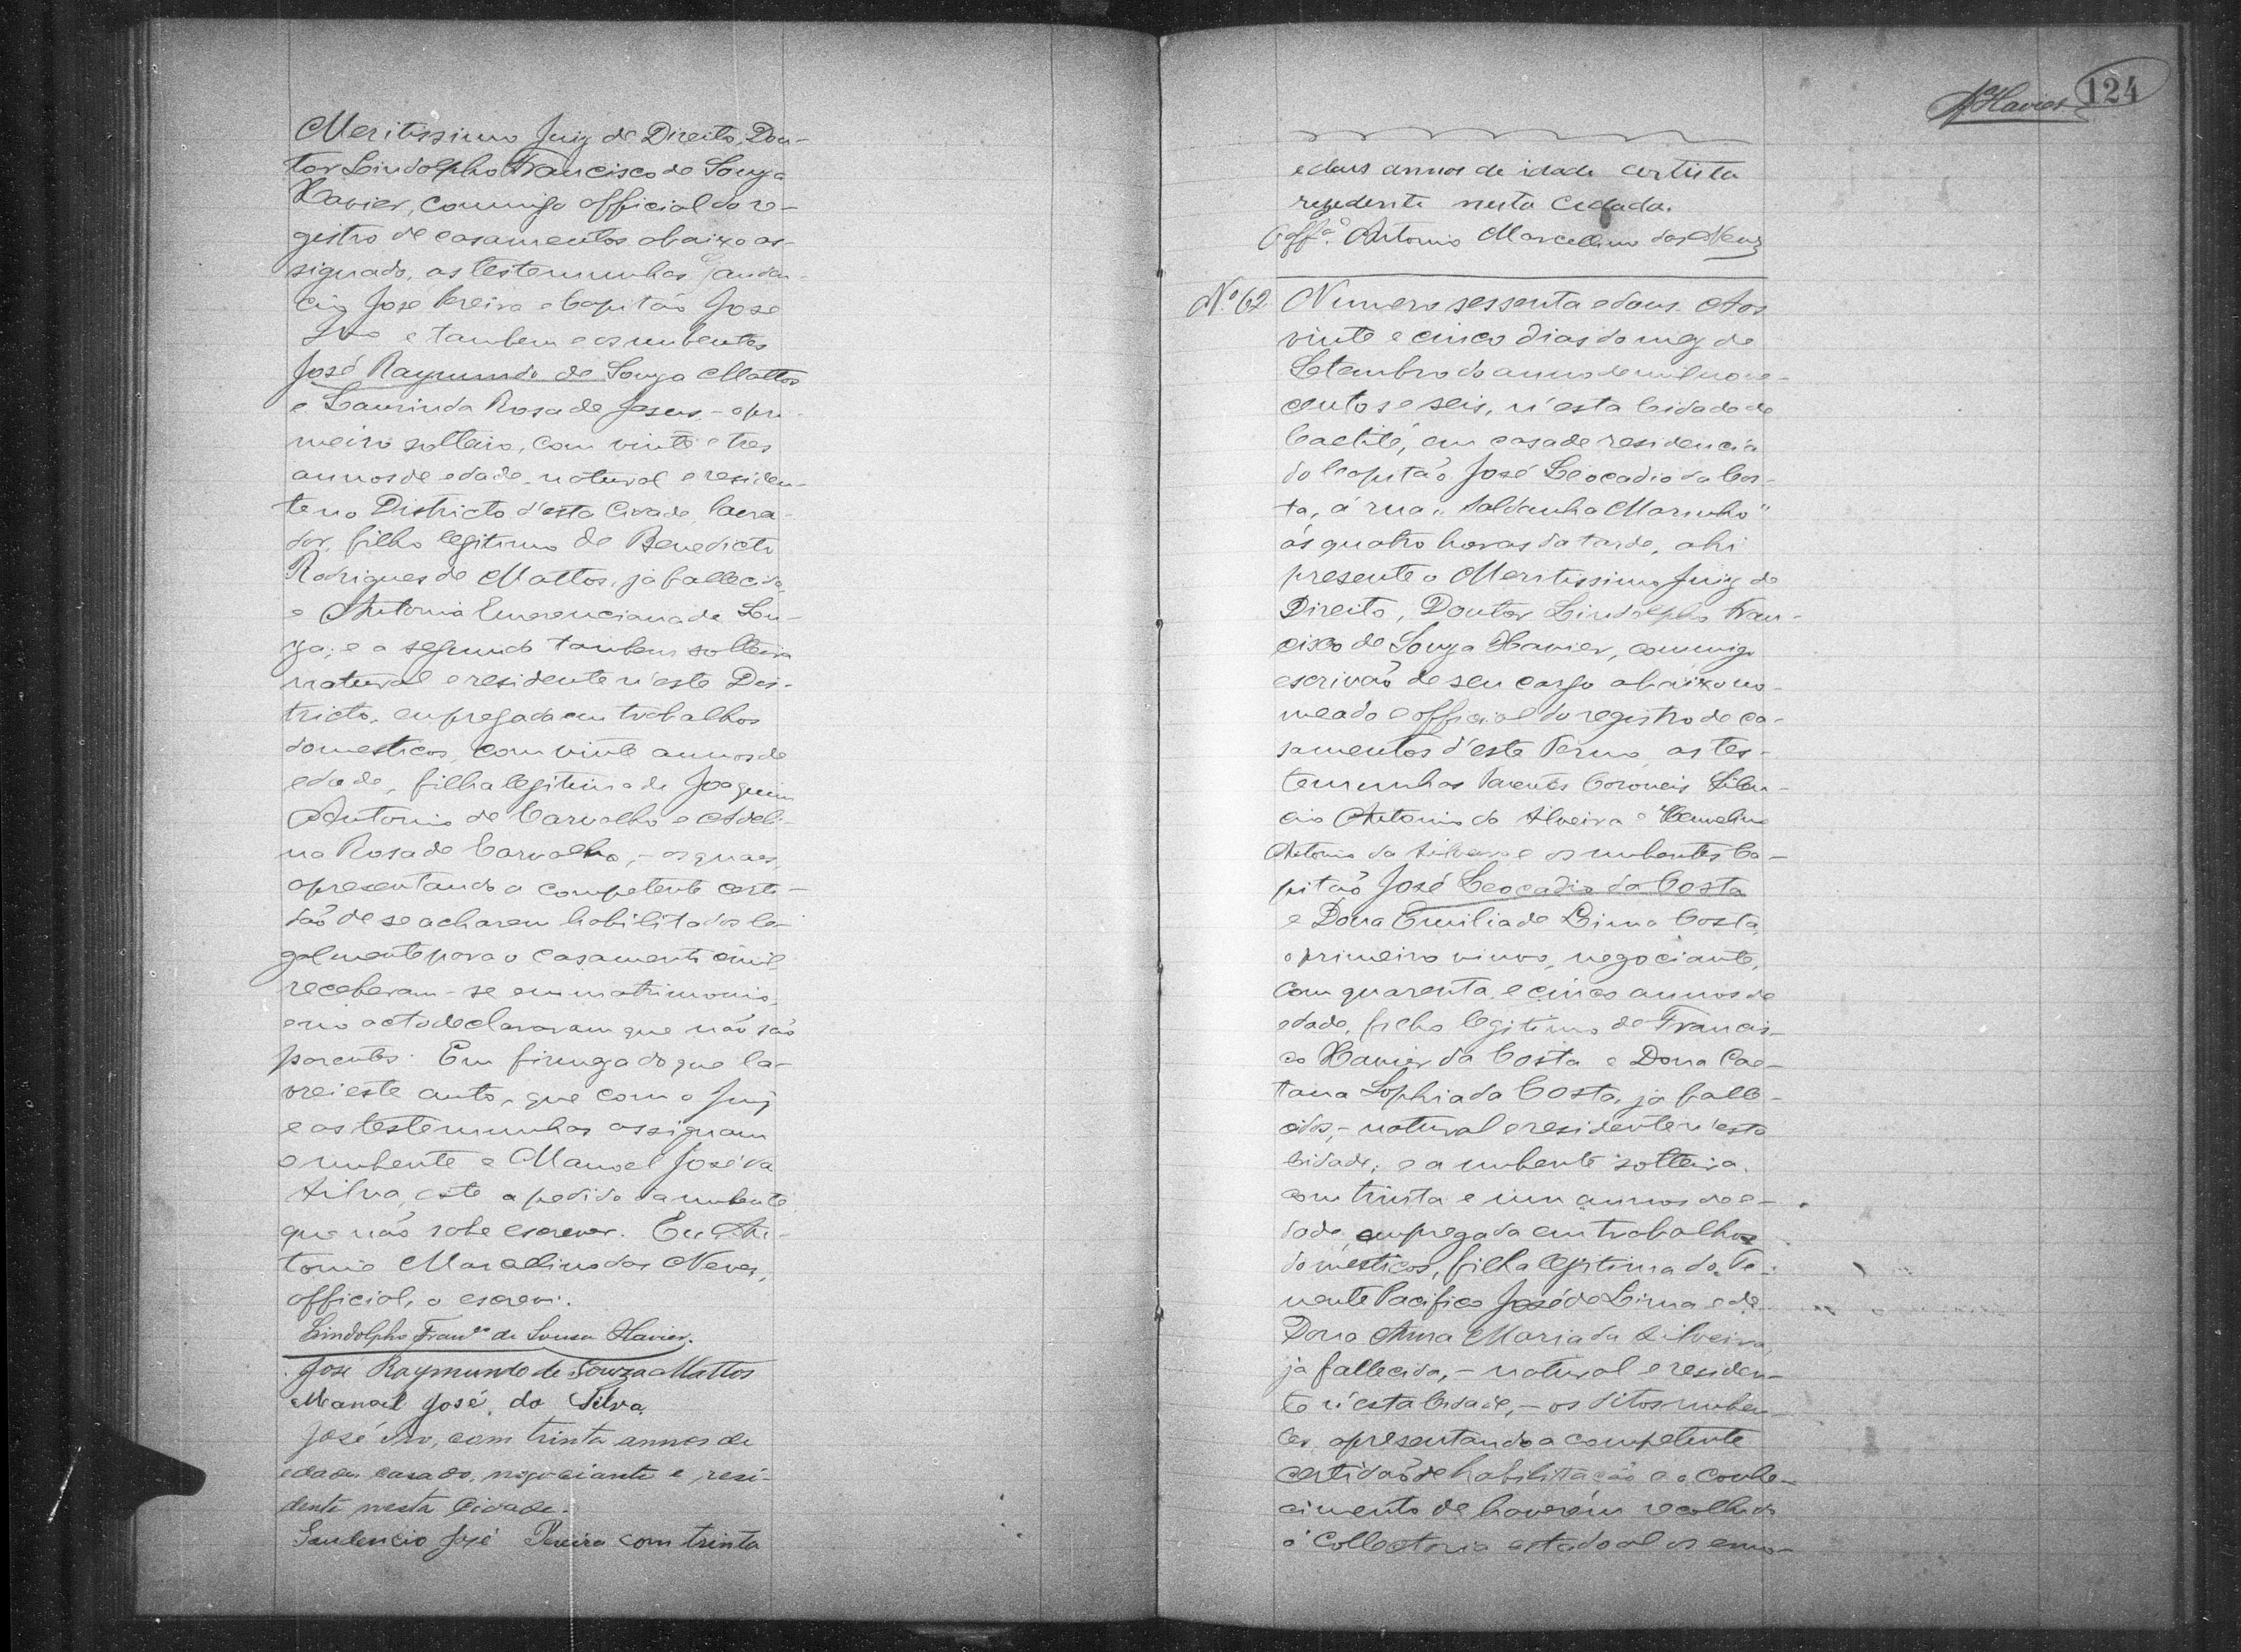 Meritissimo Juiz de Direito, Dou-
tor Lindolpho Francisco de Souza
Xavier, commigo official do re-
gistro de casamentos abaixo as-
signado, as testemunhas Gauden-
cio José Pereira e Capitão José
Ivo e tambem e os nubentes
José Raymundo de Souza Mattos
e Laurinda Rosa de Jesus, - o pri-
meiro solteiro, com vinte e tres
annos de edade, natural e residen-
te no Districto d'esta Cidade, lavra-
dor, filho legitimo de Benedicto
Rodrigues de Mattos, já fallecido,
e Antonia Emerenciana de Sou-
za; e a segunda tambem solteira
natural e residente n'este Dis-
tricto, empregada em trabalhos
domesticos, com vinte annos de
edade, filha legitima de Joaquim
Antonio de Carvalho e Adeli-
na Rosa de Carvalho, - os quaes,
apresentando a competente certi-
dão de se acharem habilitados le-
galmente para o casamento civil,
receberam-se em matrimonio,
e no acto declararam que não são
parentes. Em firmeza do que la-
vrei este auto, que com o Juiz
e as testemunhas assignam
o nubente e Manoel José da
Silva, este a pedido da nubente
que não sabe escrever. Eu An-
tonio Marcelino das Neves,
official, o escrevi.
Lindolpho Franco de Sousa Xavier.
José Raymundo de Souza Mattos
Manoel José da Silva.
José Ivo, com trinta annos de
edade, casado, negociante e resi-
dente nesta Cidade.
Gaudencio José Pereira com trinta
Xavier 124
e dous annos de idade
rezidente nesta Cidada.
Offal. Antonio Marcellino das Neves
No. 62 Numero sessenta e dous. Aos
vinte e cinco dias do mez de
Setembro do anno de mil nove-
centos e seis, n'esta Cidade de
Caetité, em casa de residencia
do Capitão José Leocadio da Cos-
ta, á rua "Saldanha Marinho"
ás quatro horas da tarde, ahi
presente o Meritissimo Juiz de
Direito, Doutor Lindolpho Fran-
cisco de Souza Xavier, commigo
escrivão de seu cargo abaixo no-
meado e official do registro de ca-
samentos d'este Termo, as tes-
temunhas Tenentes Coroneis
cio Antonio da Silveira e
Antonio da Silveira e os nubentes Ca-
pitão José Leocadio da Costa
e Dona Emilia de Lima Costa,
o primeiro viuvo, negociante,
com quarenta e cinco annos de
edade, filho legitimo de Francis-
co Xavier da Costa e Dona Cae-
tana Sophia da Costa, já falle-
cidos, - natural e residente n'esta
Cidade; e a nubente solteira,
com trinta e um annos de e-
dade, empregada em trabalhos
domesticos, filha legitima do Te-
nente Pacifico José de Lima e de
Dona Anna Maria da Silveira,
já fallecida, - natural e residen-
te n'esta Cidade, - os ditos nuben-
tes, apresentando a competente
certidão de habilitação e o conhe-
cimento de haverem recolhido
á Collectoria estadoal os emo-